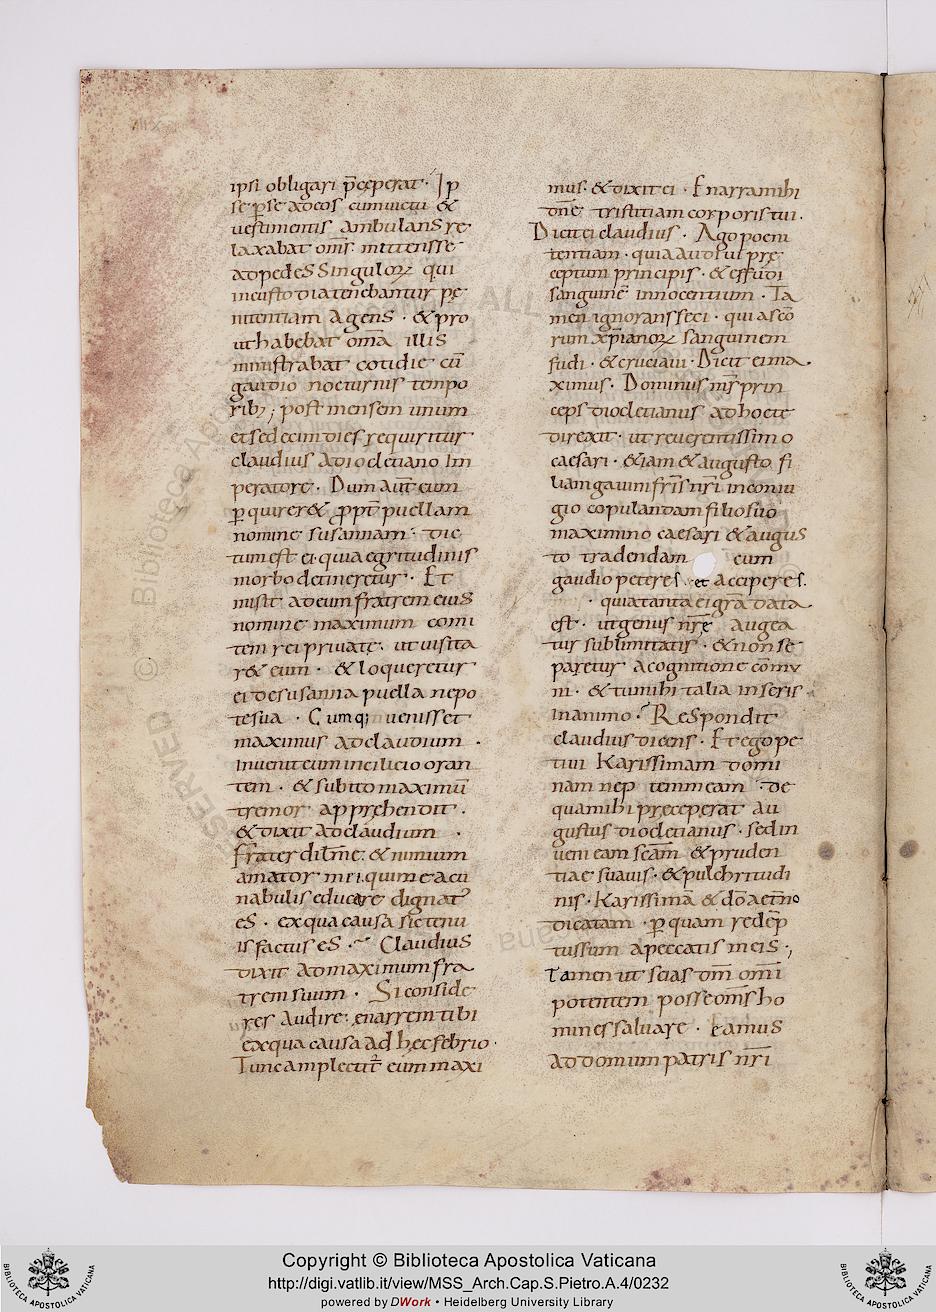 ipsi obligari p̄ceperat · Ip
se p̄ se ad eos cum uictu &
uestimentis ambulans re
laxabat om̄s · mittens se
ad pedes singuloꝝ qui
in custodia tenebantur pę
nitentiam agens · & pro
ut habebat om̄a illis
ministrabat cotidie cū
gaudio nocturnis tempo
rib; ; post mensem unum
et sedecim dies requiritur
claudius a diocletiano im
peratore · Dum aūt eum
ꝑquirer& ꝓpt̄ puellam
nomine susannam · dic
tum est ei quia egritudinis
morbo detineretur · Et
misit ad eum fratrem eius
nomine maximum comi
tem rei priuatę · ut uisita
r& eum · & loqueretur
ei de susanna puella nepo
te sua · Cumq; uenisset
maximus ad claudium ·
inuenit eum in cilicio oran
tem · & subito maximū
tremor apprehendit ·
& dixit ad claudium ·
frater dilc̄me · & nimium
amator mei · qui me a cu
nabulis educare dignat᷒
es · ex qua causa sic tenu
is factus es · Claudius
dixit ad maximum fra
trem suum · Si conside
res audire · enarrem tibi
ex qua causa ad hec febrio ·
Tunc amplectit᷒ eum maxi
mus · & dixit ei · Enarra mihi
dn̄e tristitiam corporis tui ·
Dicit ei claudius · Ago poeni
tentiam · quia audiui prę
ceptum principis · & effudi
sanguinē innocentium · Ta
men ignorans feci · qui a sc̄o
rum xp̄ianoꝝ sanguinem
fudi · & cruciaui · Dicit ei ma
ximus · Dominus n̄r prin
ceps diocletianus ad hoc te
direxit · ut reuerentissimo
caesari · & iam & augusto fi
liam gauini fr̄is n̄ri in coniu
gio copulandam filio suo
maximino caesari & augus
to tradendam cum
gaudio peteres · et acciperes ·
· quia tanta ei gr̄a data
est · ut genus n̄rę augea
tur sublimitatis · & non se
paretur a cognitione com̄u
ni · & tu mihi talia inseris
in animo · Respondit
claudius dicens · Et ego pe
tiui Karissimam domi
nam nep tem meam · de
qua mihi pręceperat au
gustus diocletianus · sed in
ueni eam sc̄am & pruden
tiae suauis · & pulchritudi
nis · Karissimā & dō aet̄no
dicatam · ꝑ quam redēp
tus sum a peccatis meis ·,
Tamen ut scias dm̄ omi̅
potentem posse om̄s ho
mines saluare · eamus
ad domum patris n̄ri
Copyright © Biblioteca Apostolica Vaticana
http://digi.vatlib.it/view/MSS_Arch.Cap.S.Pietro.A.4/0232
powered by DWork • Heidelberg University Library